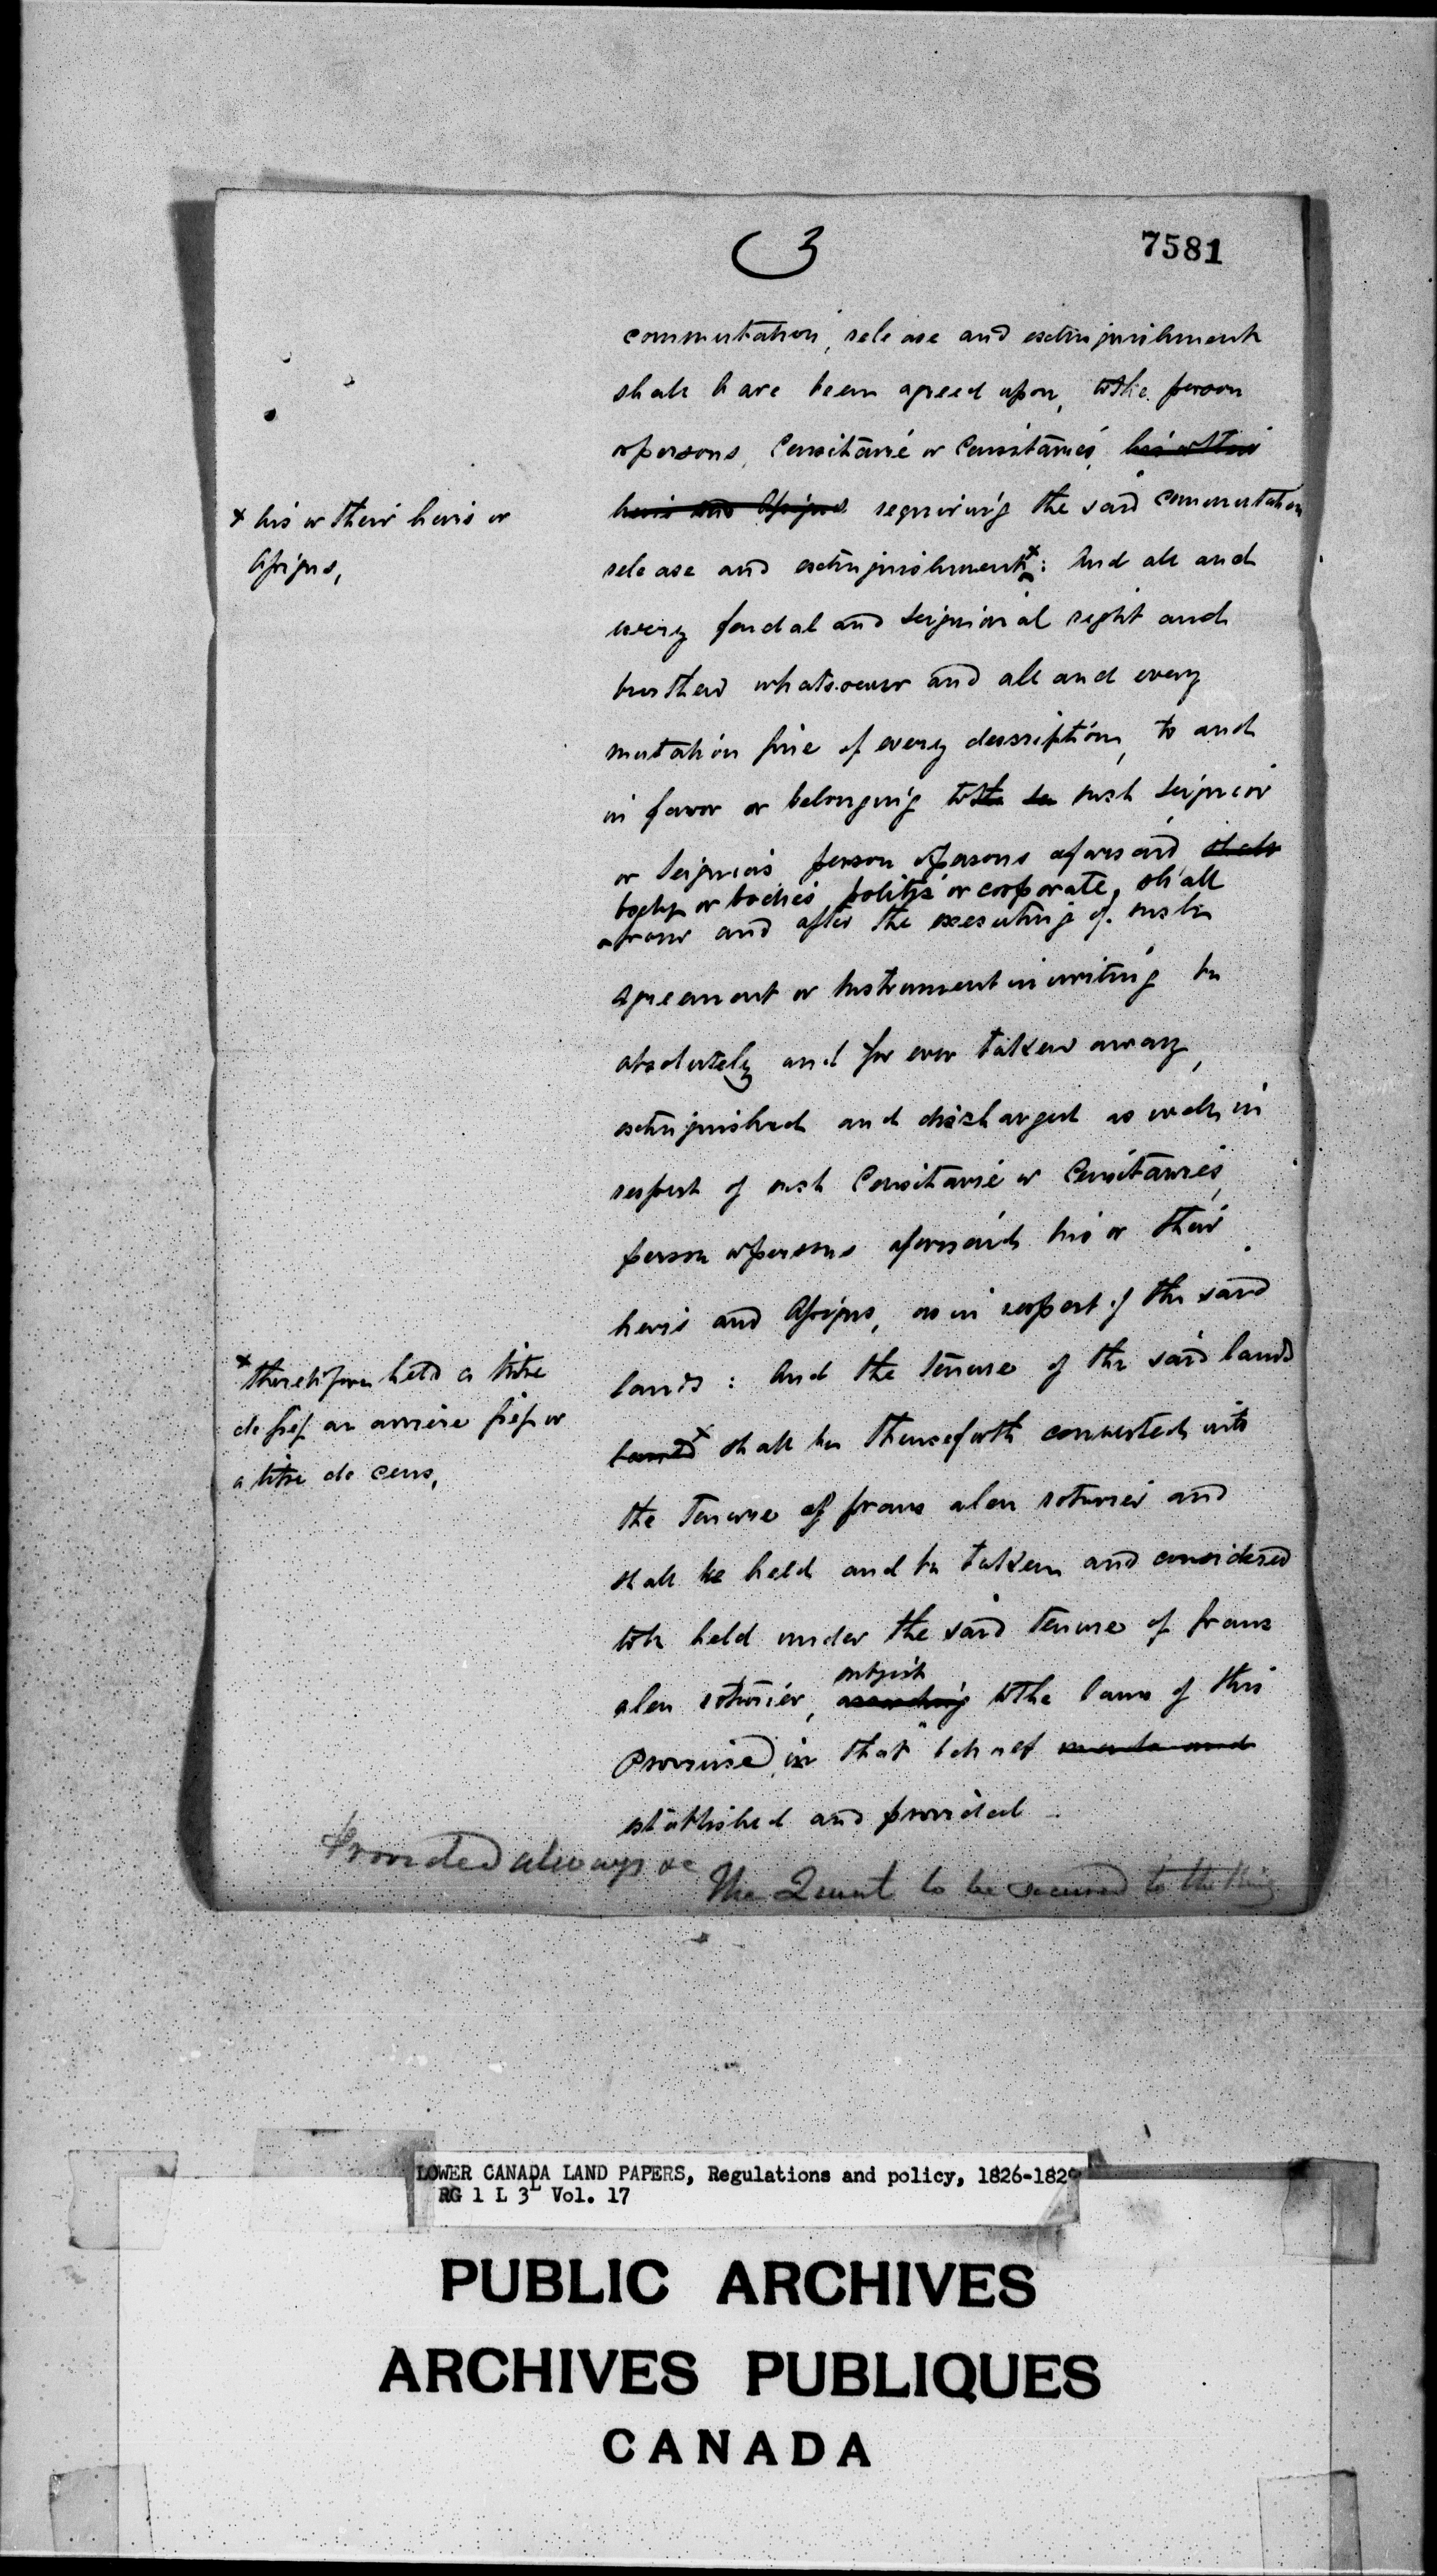 3
7581
commutation, release and extinguishment
shall have been agreed upon, to the person
or persons, Censitaire or Censitaires, his or their
heirs and Assigns requiring the said commutation
* his or their heirs or
Assigns,
release and extinguishment*: And all and
every feudal and Seignioral right and
burthen whatsoever and all and every
mutation fine of every description, to and
in favor or belonging to such Seignior
or Seigniors person or persons aforesaid, shall
body or bodies politic or corporate, shall
from and after the executing of such
agreement or Instrument in writing be
absolutely and for ever taken away,
extinguished and discharged as well in
respect of such Censitaire or Censitaires,
person or persons aforesaid his or their
heirs and Assigns, as in respect of the said
lands: And the tenure of the said lands
* theretofore held a titre
de fief an arriere fief or
a titre de cens,
lands* shall be thenceforth converted into
the Tenure of franc aleu roturier and
shall be held and be taken and considered
to be held under the said tenure of franc
subject
aleu roturier, according to the laws of this
Province in that behalf made and
established and provided
Provided always &c
The Quint to be secured to the King
LOWER CANADA LAND PAPERS, Regulations and policy, 1826-1829
RG 1 L 3L Vol. 17
PUBLIC ARCHIVES
ARCHIVES PUBLIQUES
CANADA